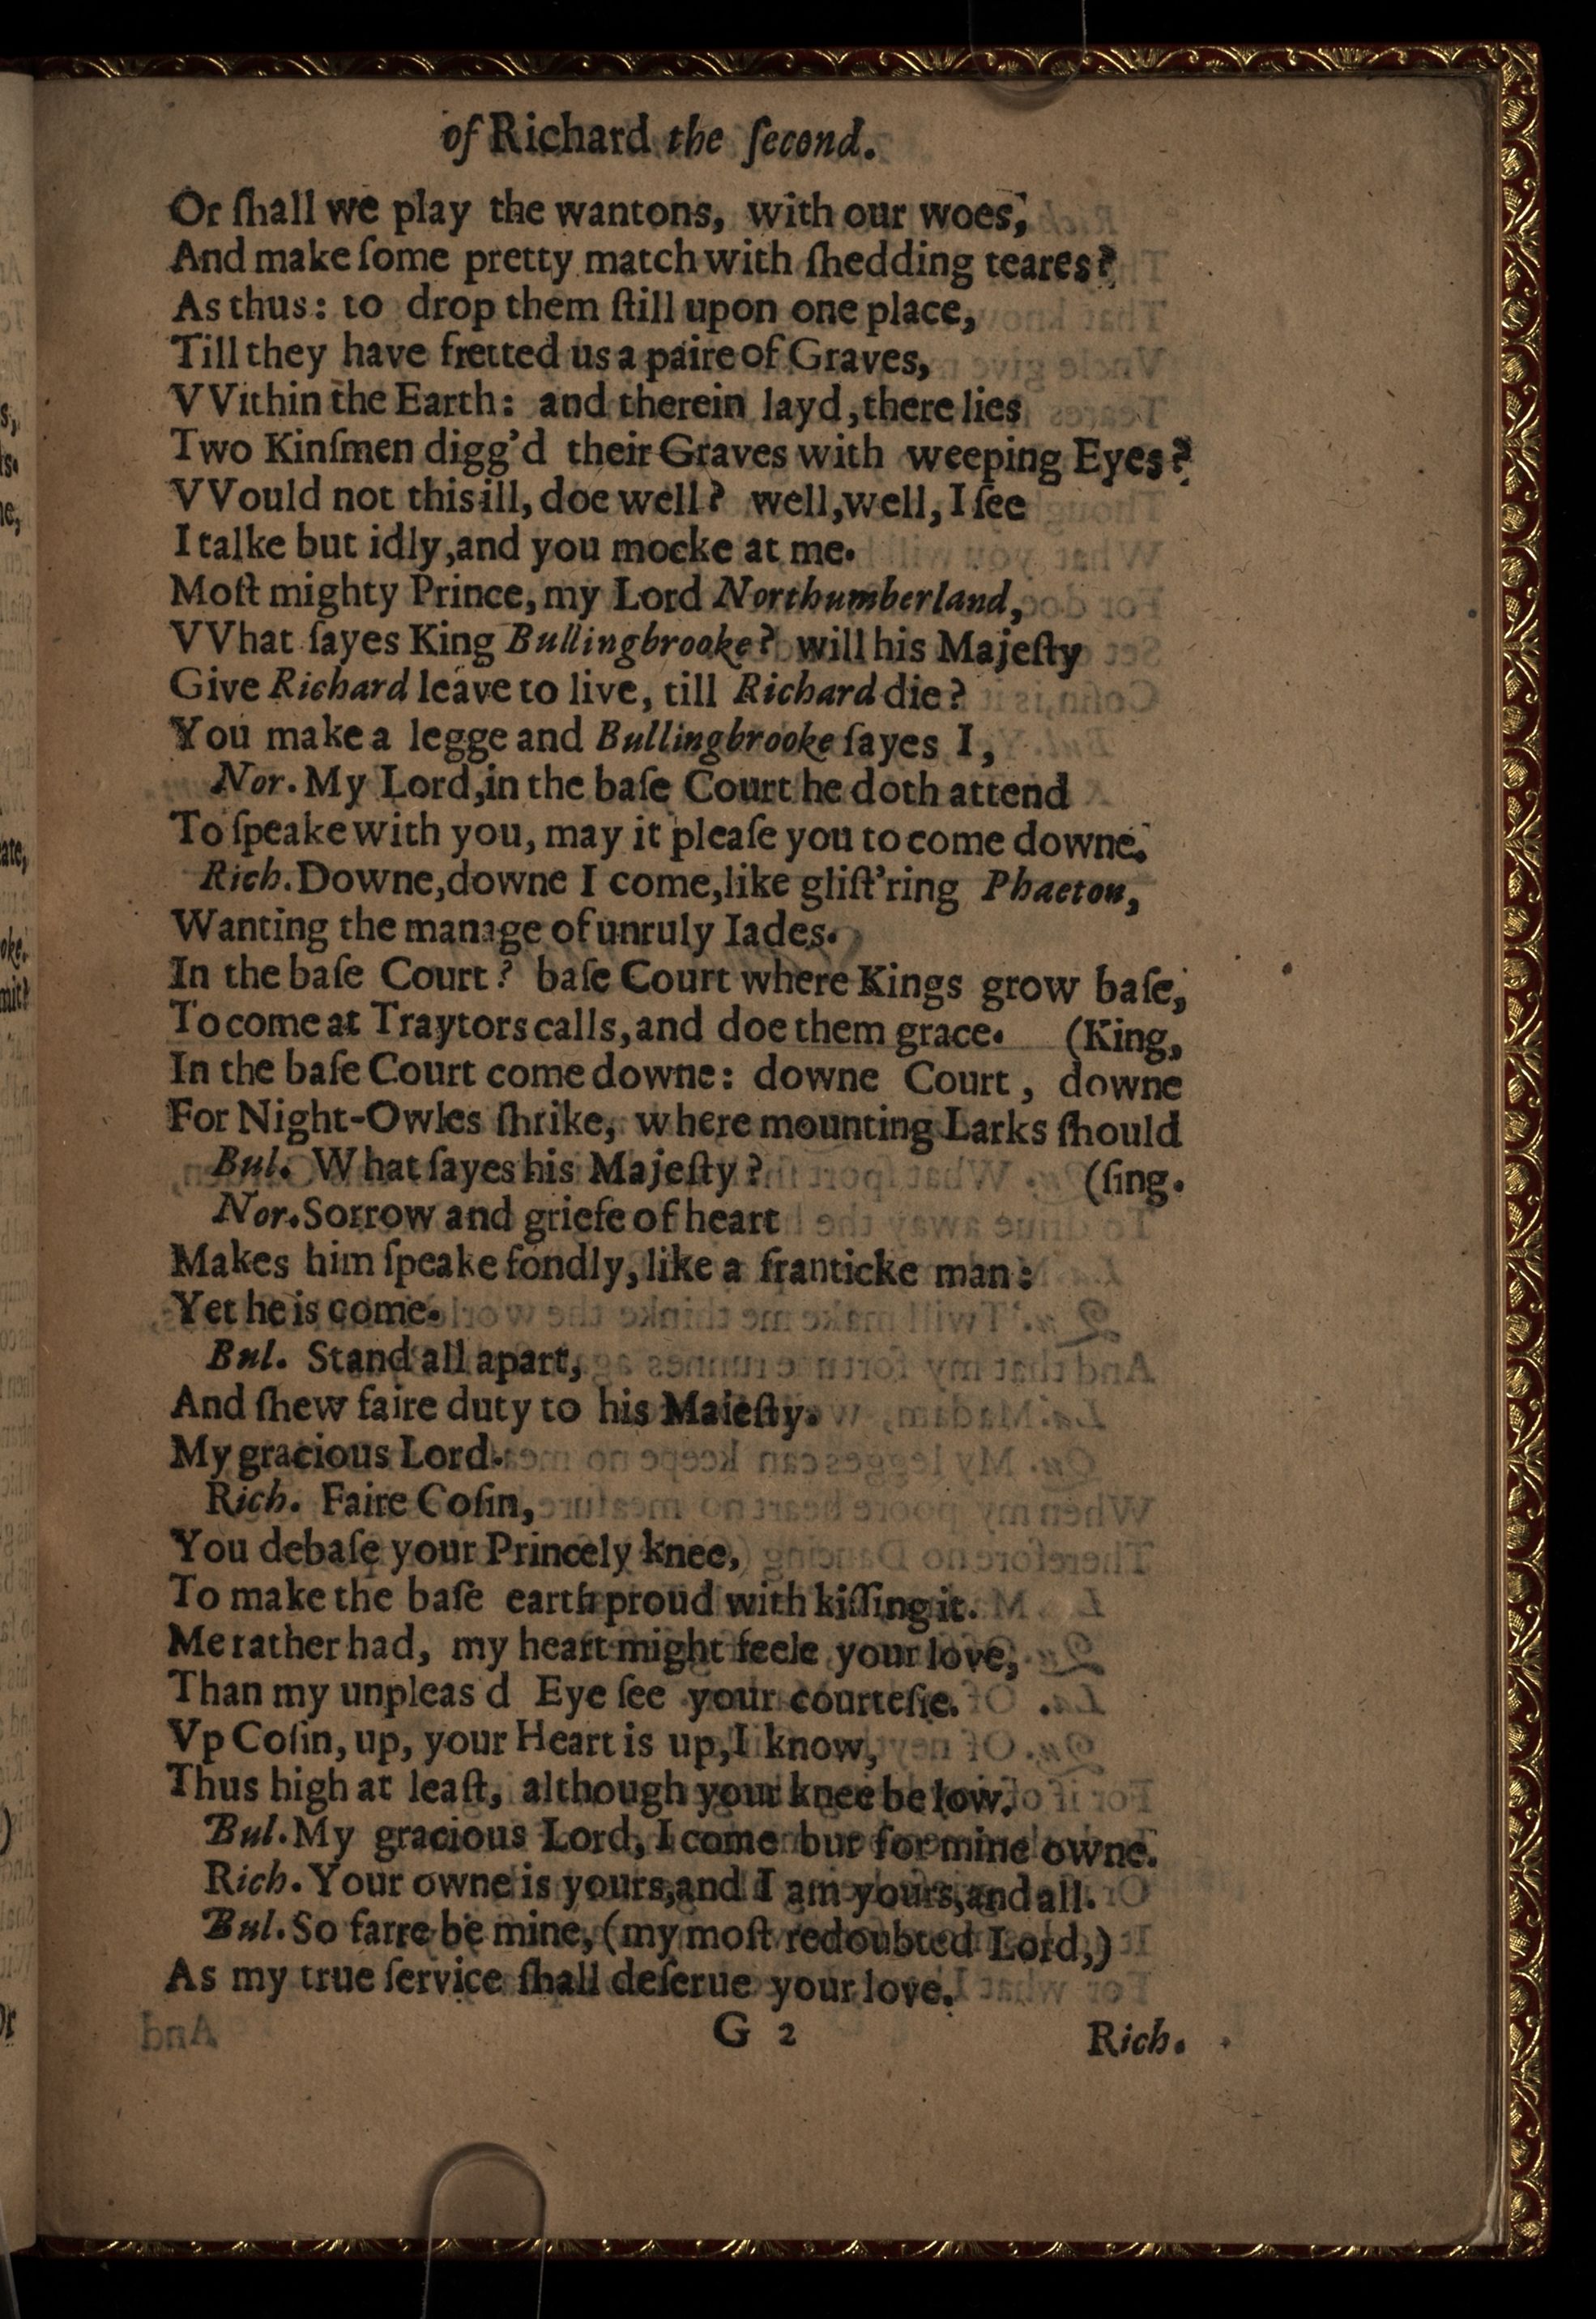 of Richard the ſecond.
Or ſhall we play the wantons, with our woes,
And make ſome pretty match with ſhedding teares?
As thus: to drop them ſtill upon one place,
Till they have fretted us a paire of Graves,
VVithin the Earth: and therein layd, there lies
Two Kinſmen digg'd their Graves with weeping Eyes?
VVould not this ill, doe well? well, well, I ſee
I talke but idly, and you mocke at me.
Moſt mighty Prince, my Lord Northumberland,
VVhat ſayes King Bullingbrooke? will his Majeſty
Give Richard leave to live, till Richard die?
You make a legge and Bullingbrooke ſayes I,
Nor. My Lord, in the baſe Court he doth attend
To ſpeake with you, may it pleaſe you to come downe.
Rich. Downe, downe I come, like gliſt'ring Phaeton,
Wanting the manage of unruly Iades.
In the baſe Court? baſe Court where Kings grow baſe,
To come at Traytors calls, and doe them grace. (King,
In the baſe Court come downe: downe Court, downe
For Night-Owles ſhrike, where mounting Larks ſhould
Bul. What ſayes his Majeſty? (ſing.
Nor. Sorrow and griefe of heart
Makes him ſpeake fondly, like a franticke man:
Yet he is come.
Bul. Stand all apart,
And ſhew faire duty to his Maieſty.
My gracious Lord.
Rich. Faire Coſin,
You debaſe your Princely knee,
To make the baſe earth proud with kiſſing it.
Me rather had, my heart might feele your love,
Than my unpleas d Eye ſee your courteſie.
Vp Coſin, up, your Heart is up, I know,
Thus high at leaſt, although your knee be low.
Bul. My gracious Lord, I come but for mine owne.
Rich. Your owne is yours, and I am yours, and all.
Bul. So farre be mine, (my moſt redoubted Lord,)
As my true ſervice ſhall deſerue your love.
G 2 Rich.